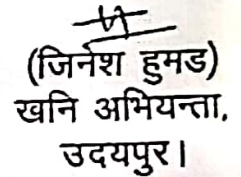 (जिनेश हुमड)
खनि अभियन्ता,
उदयपुर।